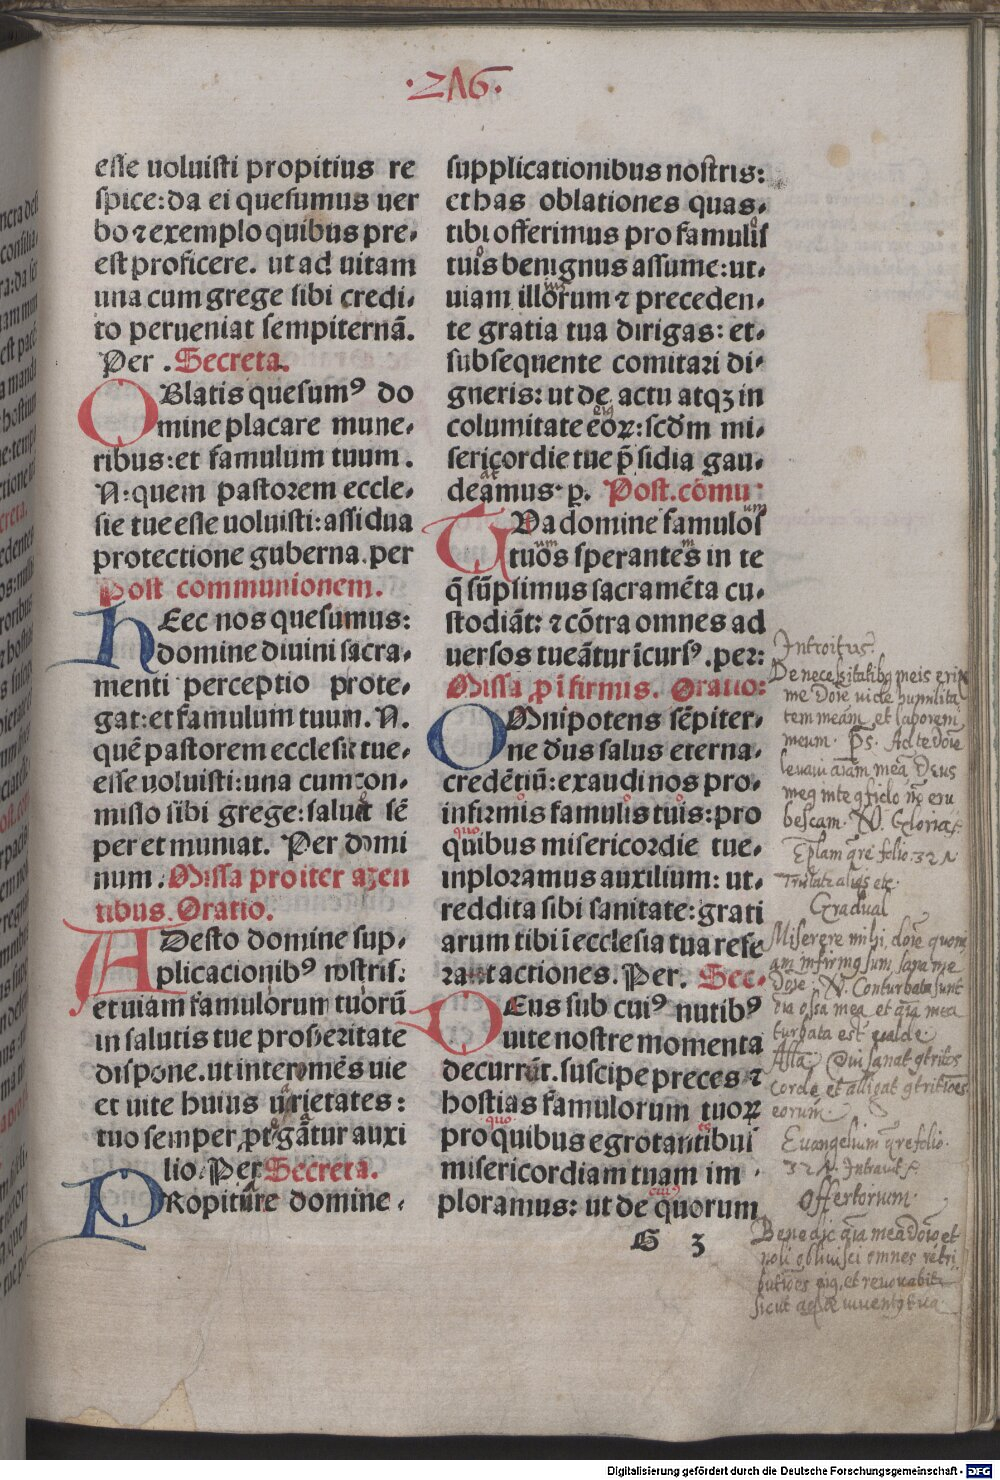 ·216·
esse uoluisti propitius re
spice: da ei quesumus uer
bo ⁊ exemplo quibus pre,
est proficere. ut ad uitam
una cum grege sibi credi,
to perueniat sempiternã.
Per . Secreta.
OBlatis quesumꝰ do
mine placare mune,
ribus: et famulum tuum .
N: quem pastorem eccle,
sie tue esse uoluisti: assidua
protectione guberna. per
Post communionem.
hEec nos quesumus:
domine diuini sacra,
menti perceptio prote,
gat: et famulum tuum. N.
quē pastorem ecclesie tue,
esse uoluisti: una cum con,
misso sibi grege: saluet sē
per et muniat. Per domi
num. Missa pro iter agen
tibus. Oratio.
ADesto domine sup,
plicacionibꝰ nostris:
et uiam famulorum tuorū
in salutis tue prosperitate
dispone. ut inter omēs uie
et uite huius uarietates:
tuo semper ꝓtegãtur auxi
lio. Per Secreta.
PRopiture domine,
supplicationibus nostris:
et has oblationes quas,
tibi offerimus pro famulis
tuis benignus assume: ut,
uiam illorum ⁊ preceden,
te gratia tua dirigas: et,
subsequente comitari di,
gneris: ut de actu atqꝫ in
columitate eoꝝ: scđm mi,
sericordie tue p̃sidia gau,
deamus. p. Post. cōmu
TUa domine famulos
tuos sperantes in te
q̃ sūplimus sacramēta cu,
stodiāt: ⁊ cōtra omnes ad
uersos tueātur īcursꝰ. per:
Missa ꝓ īfirmis. Oratio:
OMnipotens sēpiter,
ne deus salus eterna,
credētiū: exaudi nos pro,
infirmis famulis tuis: pro
quibus misericordie tue,
inploramus auxilium: ut,
reddita sibi sanitate: grati
arum tibi ī ecclesia tua refe
rant actiones. Per. Sec.
DEus sub cuiꝰ nutibꝰ
uite nostre momenta
decurrūt. suscipe preces ⁊
hostias famulorum tuoꝝ
pro quibus egrotantibus
misericordiam tuam im
ploramus: ut de quorum
G 3
Introitus.
De necessitatibꝰ meis erip
me Dñe vide humilita
tem meam, et laborem
meum. Ps. Ad te dñe
levavi aīam meā Deus
meꝰ in te cōfido nō eru
bescam. V. Gloria
Eplam q̄re folio. 321
Tristatur aliqs etc.
Gradual
Miserere mihi dñe quon
am infirmꝰ sum, sana me
Dñe. V. Conturbata sunt
oīa ossa mea et aīa mea
turbata est valde.
Alla. Qui sanat cōtritos
corde et alligat cōtritiones
eorum
Evangelium q̄re folio.
321. Intravit
Offertorium.
Benedic aīa mea dño et
noli oblivisci omnes retri
butiões eiꝰ, et renovabit
sicut aqle iuventꝰ tua
Digitalisierung gefördert durch die Deutsche Forschungsgemeinschaft - DFG